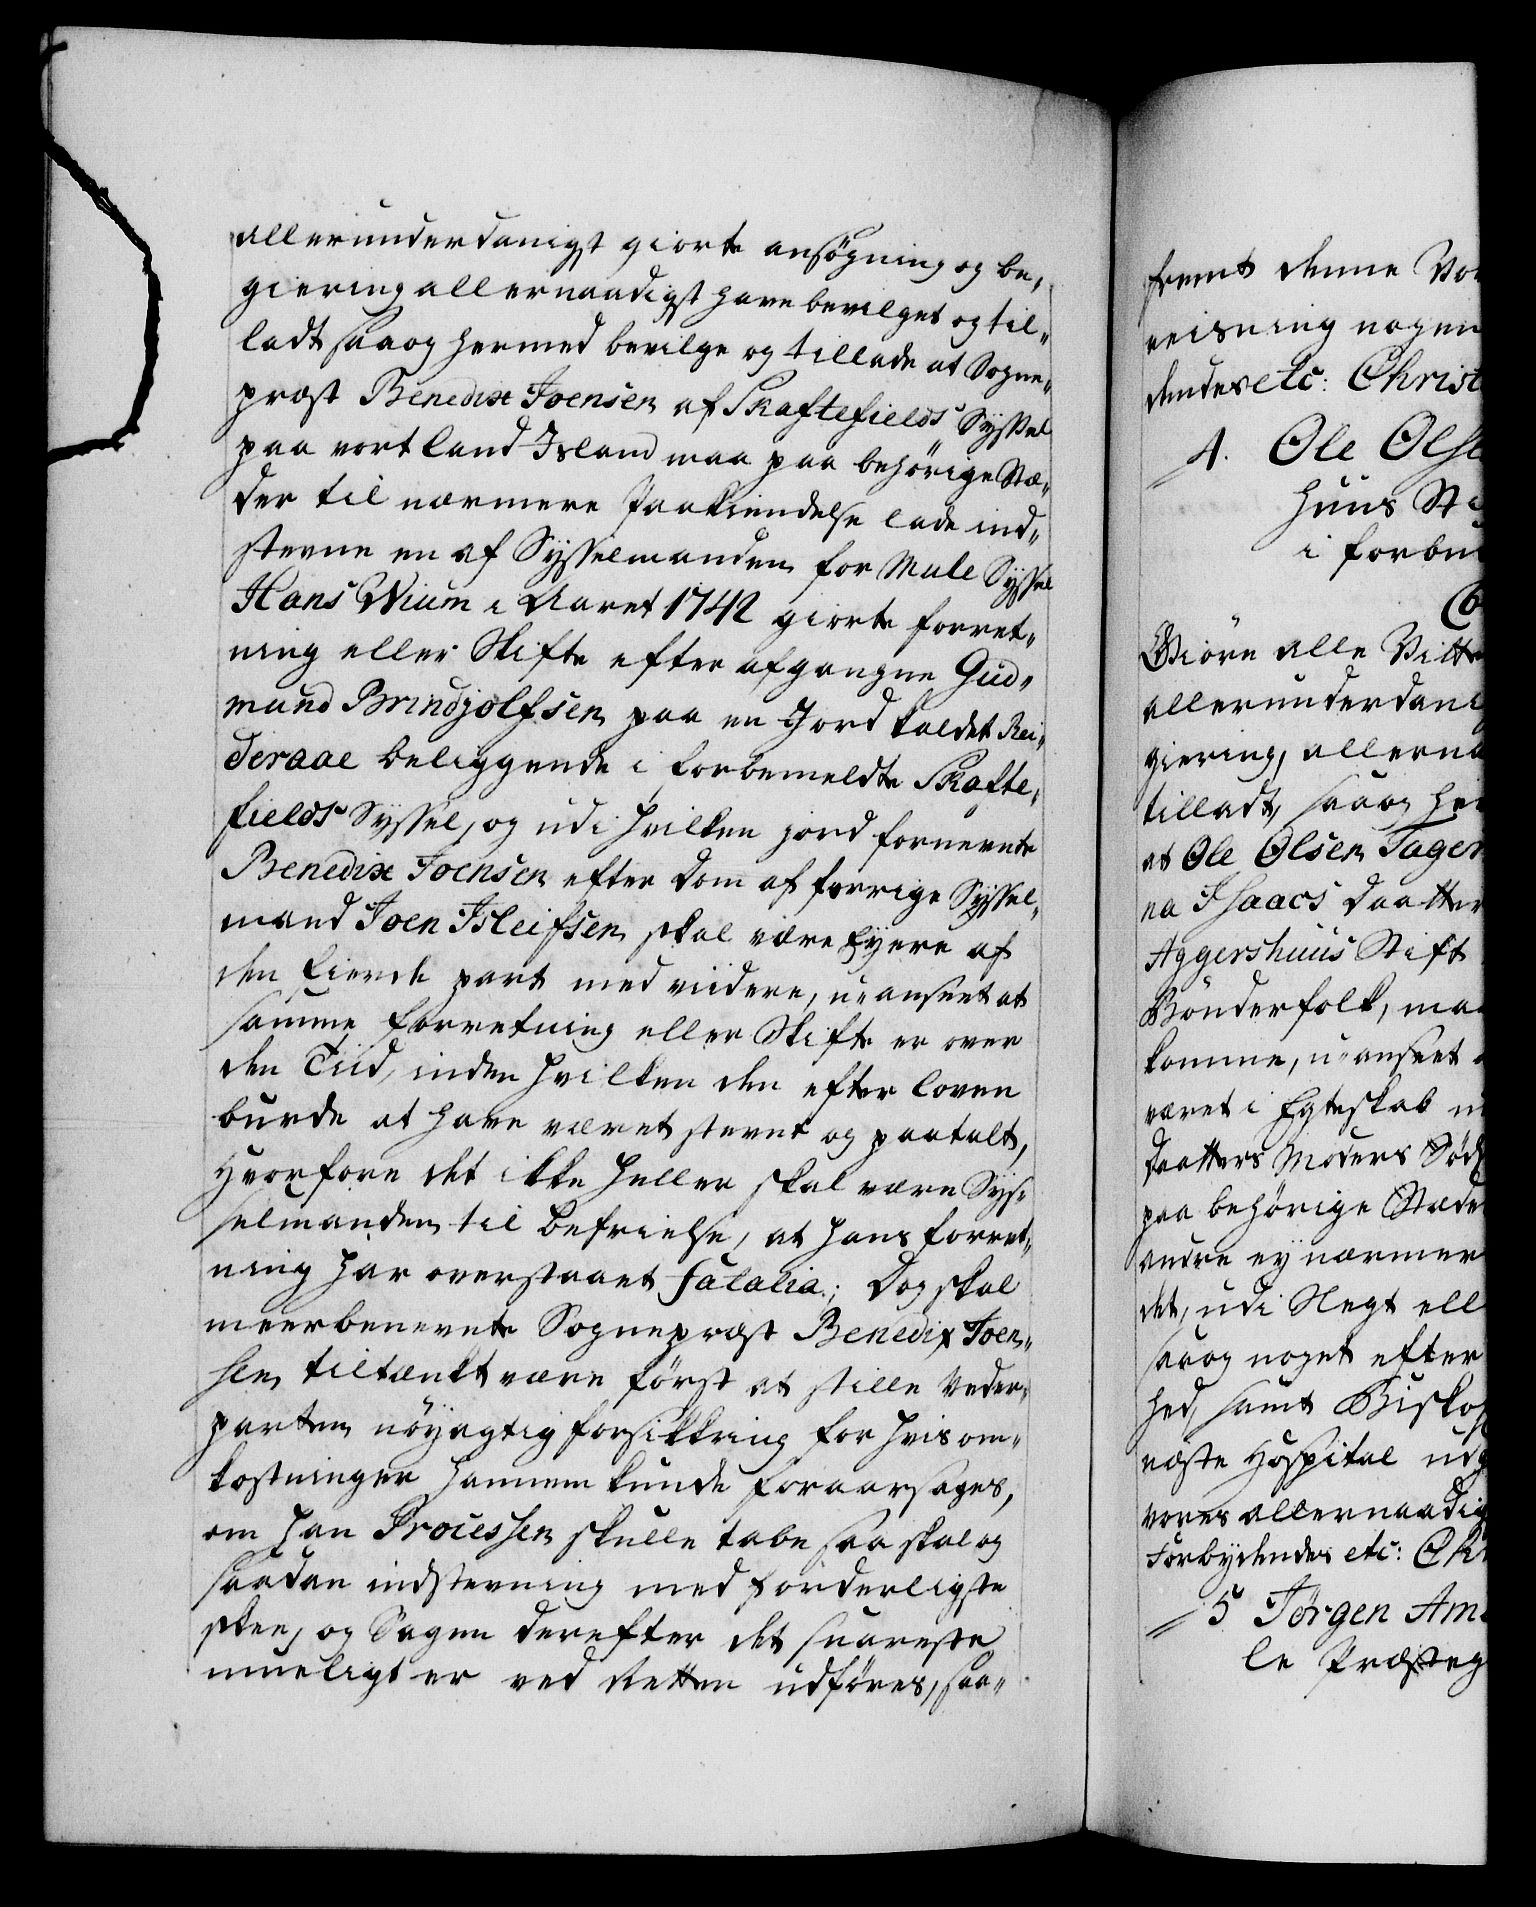 allerunderdanigst giorte ansøgning og be„
giering allernaadigst have bevilget og til„
ladt saa og hermed bevilge og tillade at Sogne„
præst Benedix Joensen af Skaftefields Syssel
paa vort land Island maa paa behörige Stæ„
der til nærmere Paakiendelse lade ind„
stevne en af Sysselmanden for Mule Syssel
Hans Wium i Aaret 1742 giorte forret„
ning eller Skifte efter afgangne Gud„
mund Brindjolfsen paa en Jord kaldet Rei„
deraae beliggende i forbemeldte Skafte„
fields Syssel, og udi hvilken jord fornevnte
Benedix Joensen efter Dom af forrige Syssel„
mand Joen Isleifsen skal være Eyere af
den Fierde part med viidere, u-anseet at
samme forretning eller Skifte er over
den Tiid, inden hvilken den efter loven
burde at have været stevnt og paatalt,
hvorfore det ikke heller skal være Sys„
selmanden til befrielse, at hans forret„
ning har overstaaet fatalia; Dog skal
meerbenevnte Sognepræst Benedix Joen„
sen tiltænkt være först at stille Veder„
parten nöyagtig forsikkring for hvis om„
kostninger hannem kunde foraarsages,
om han Processen skulle tabe saa skal og
saadan indstevning med forderligste
skee, og Sagen derefter det snareste
mueligt er ved Retten udföres, saa„
fremt denne Vor
viisning nogen
dendes etc: Christ
4. Ole Olse
huus Sti
i forbu
Giöre alle Vitte
allerunderdani
giering, allerna
tilladt, saa og her
at Ole Olsen Tager
na Isaacs Daatter
Aggershuus Stift
Bönderfolk, maa
komme, u-anseet
været i Egteskab
Daatters Moders Söd
paa behörige Stæde
andre ey nærmer
det, udi Slegt ell
saa og noget efter
hed, samt Biskop
næste Hospital udg
vores allernaadig
Forbydendes etc: Chr
5 Jørgen Am
le Præsteg